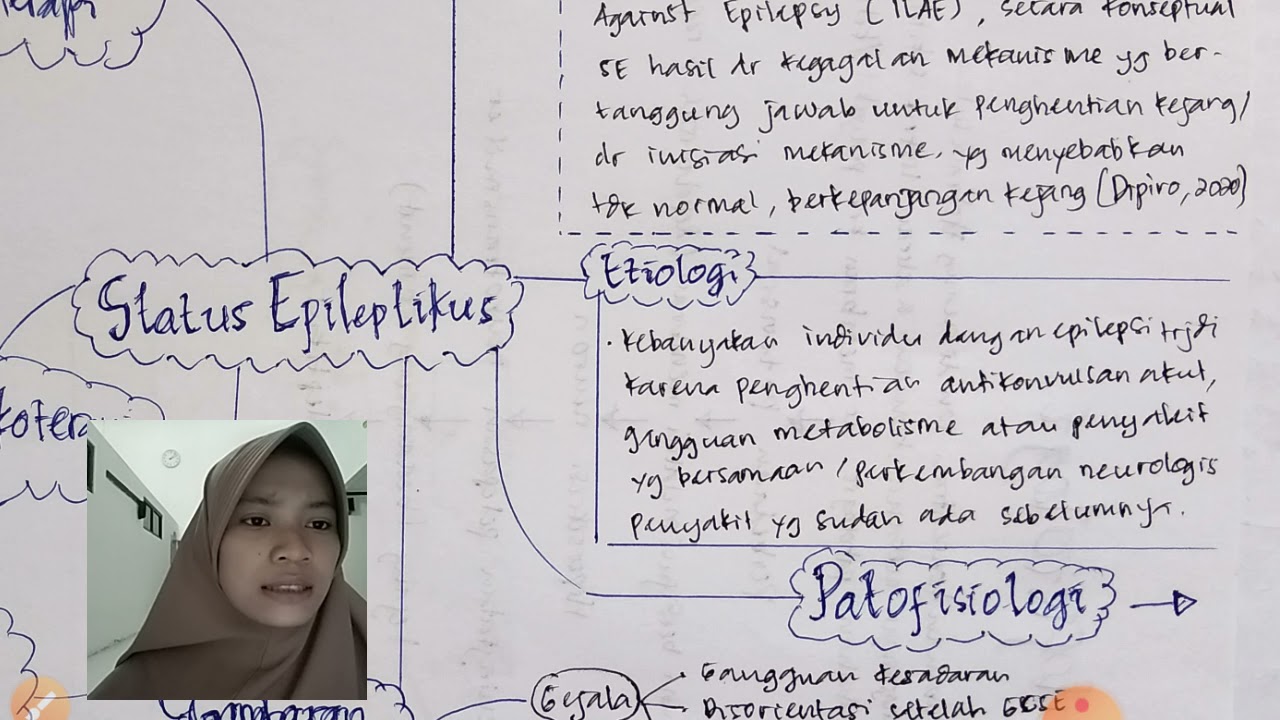 Terapi
Against Epilepsy (ILAE), secara konseptual
SE hasil dr kegagalan mekanisme yg ber-
tanggung jawab untuk penghentian kejang/
dr inisiasi mekanisme, yg menyebabkan
tdk normal, berkepanjangan kejang (Dipiro, 2020)
Etiologi
Status Epileptikus
• Kebanyakan individu dengan epilepsi trjdi
karena penghentian antikonvulsan akut,
gangguan metabolisme atau penyakit
yg bersamaan / perkembangan neurologis
penyakit yg sudah ada sebelumnya.
Patofisiologi
Gejala
• Gangguan Kesadaran
• Disorientasi setelah GCSE